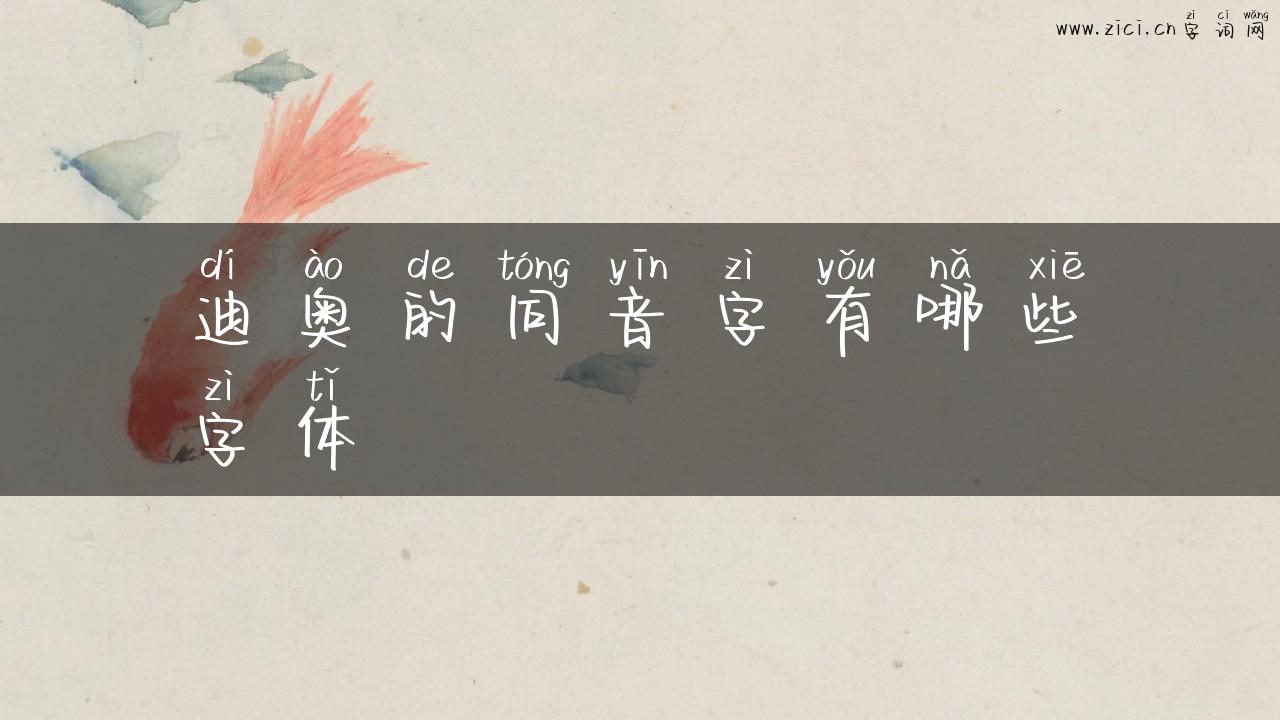 zì cí wǎng
www.zici.cn 字词网
dí ào de tóng yīn zì yǒu nǎ xiē
迪奥的同音字有哪些
zì tǐ
字体